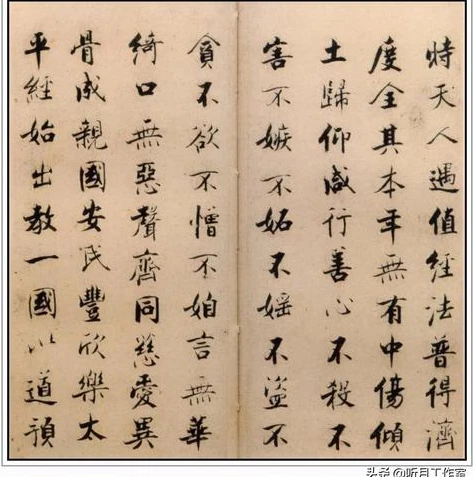 時天人遇值經法普得濟
度全其本年無有中傷傾
土歸仰咸行善心不殺不
害不嫉不妬不婬不盜不
貪不欲不憎不言無華
綺口無惡聲齊同慈愛異
骨成親國安民豐欣樂太
平經始出教一國以道預
头条@听月工作室